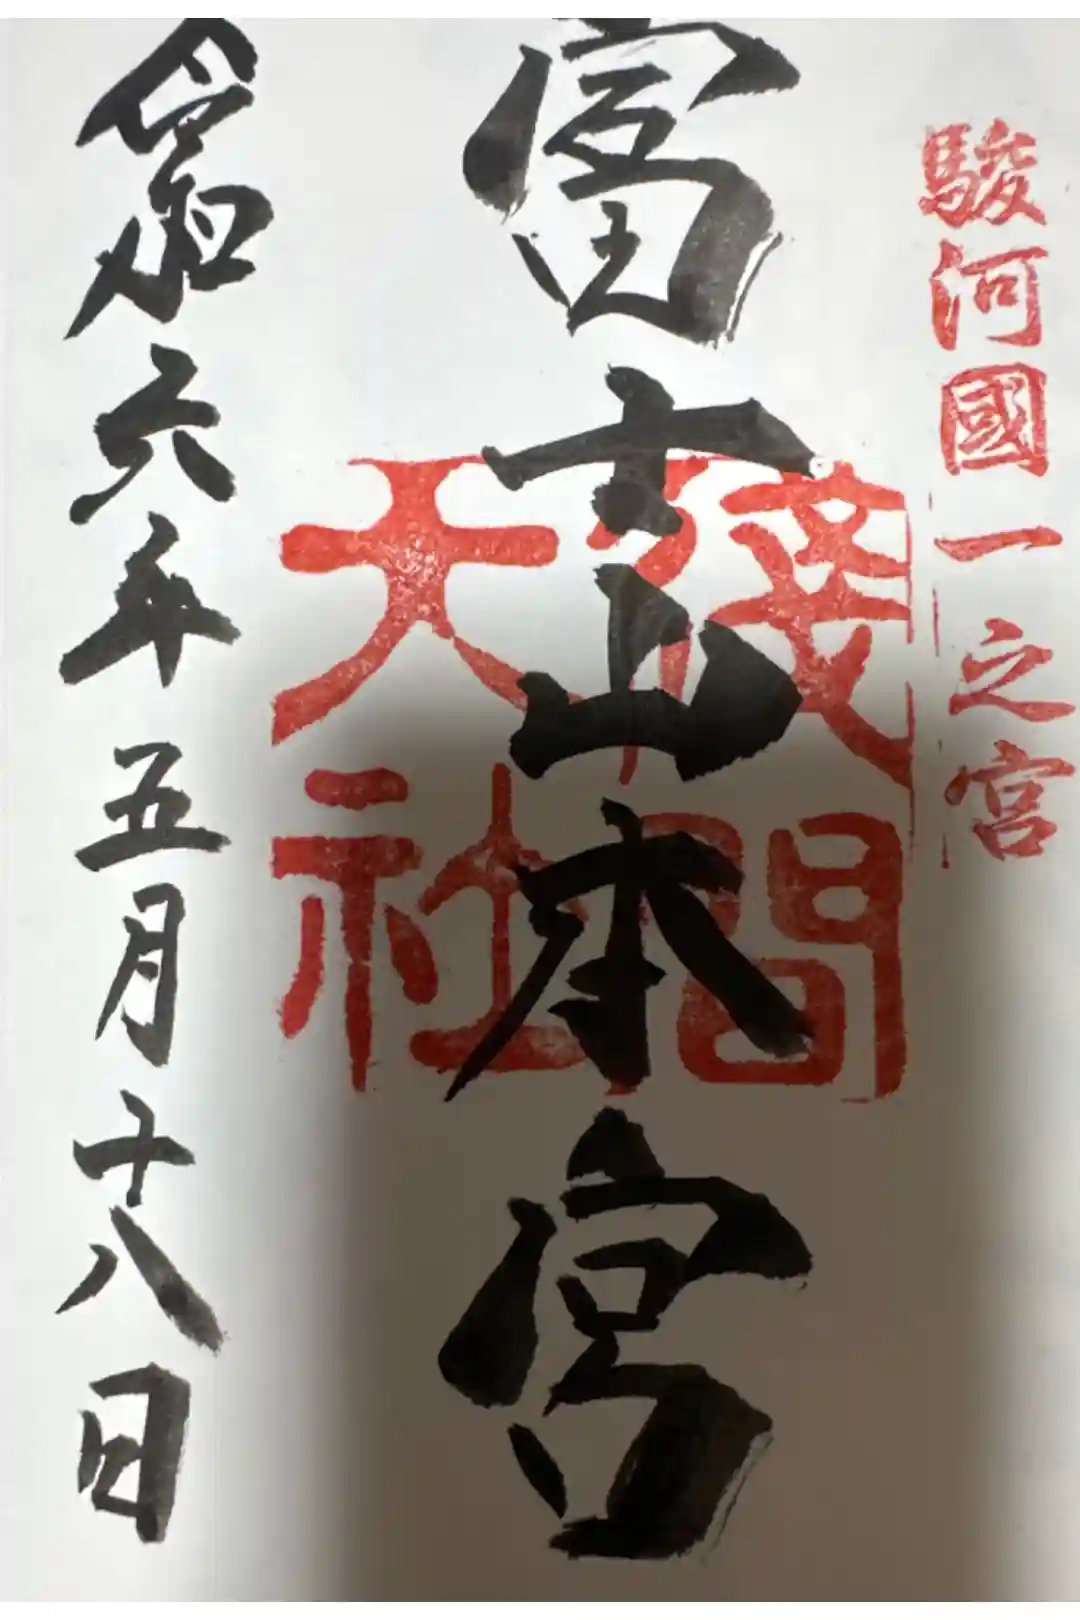 駿河國一之宮
富士山本宮
淺間
大社
令和六年五月十八日